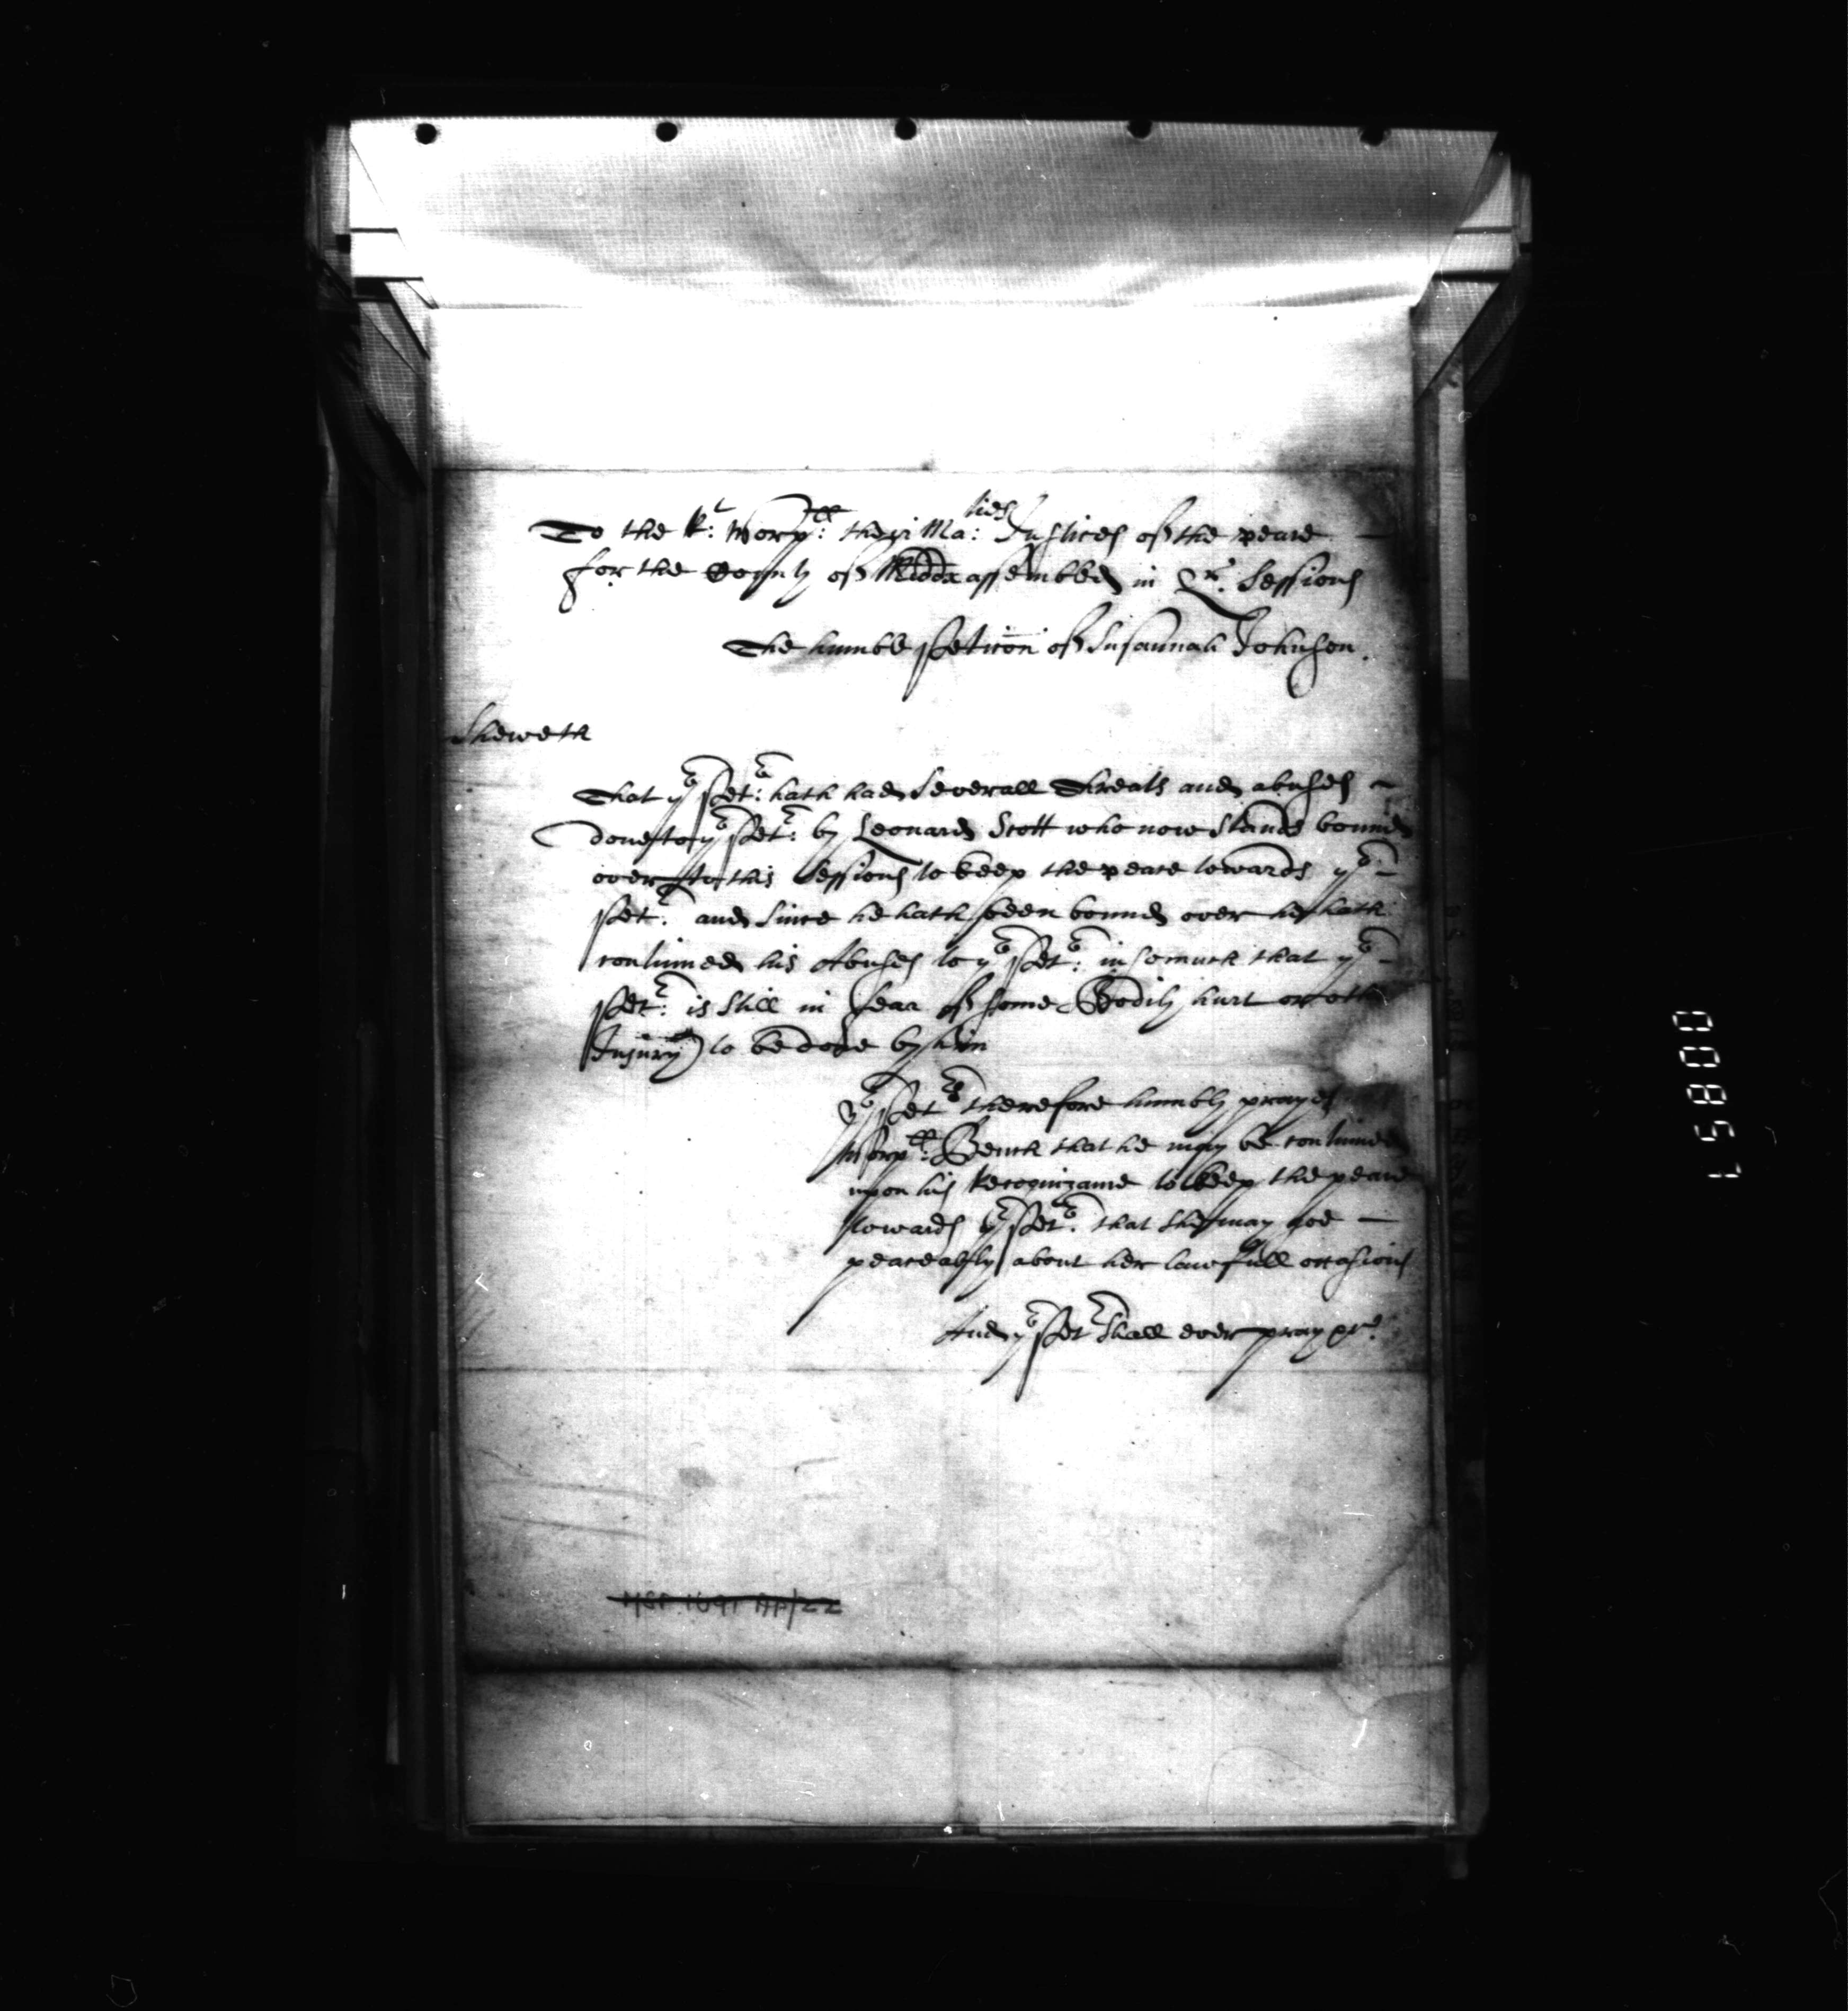 To the R:t Worp:ll theyr Ma:ties Justices of the peace
for the County of Middx assembled in Qr. Sessions
The humble Peticon of Susannah Johnson.
Sheweth
That yr Petr: hath had Severall Threats and abuses
done to yr Petr: by Leonard Scott who now Stands bound
over to this Sessions to keep the peace towards yr
Petr: and Since he hath been bound over he hath
continued his Abuses to yr Petr: in Somuch that yr
Petr: is Still in fear of some Bodily hurt or oth
Injury to be done by him
Yr Petr therefore humbly prayes
Worp:ll Bench that he may be continued
upon his Recognizance to keep the peace
towards yr Petr: that She may goe
peaceably about her lawfull occasions
And yr Petr Shall ever pray &c:
MSP 1691 AP/22
00857